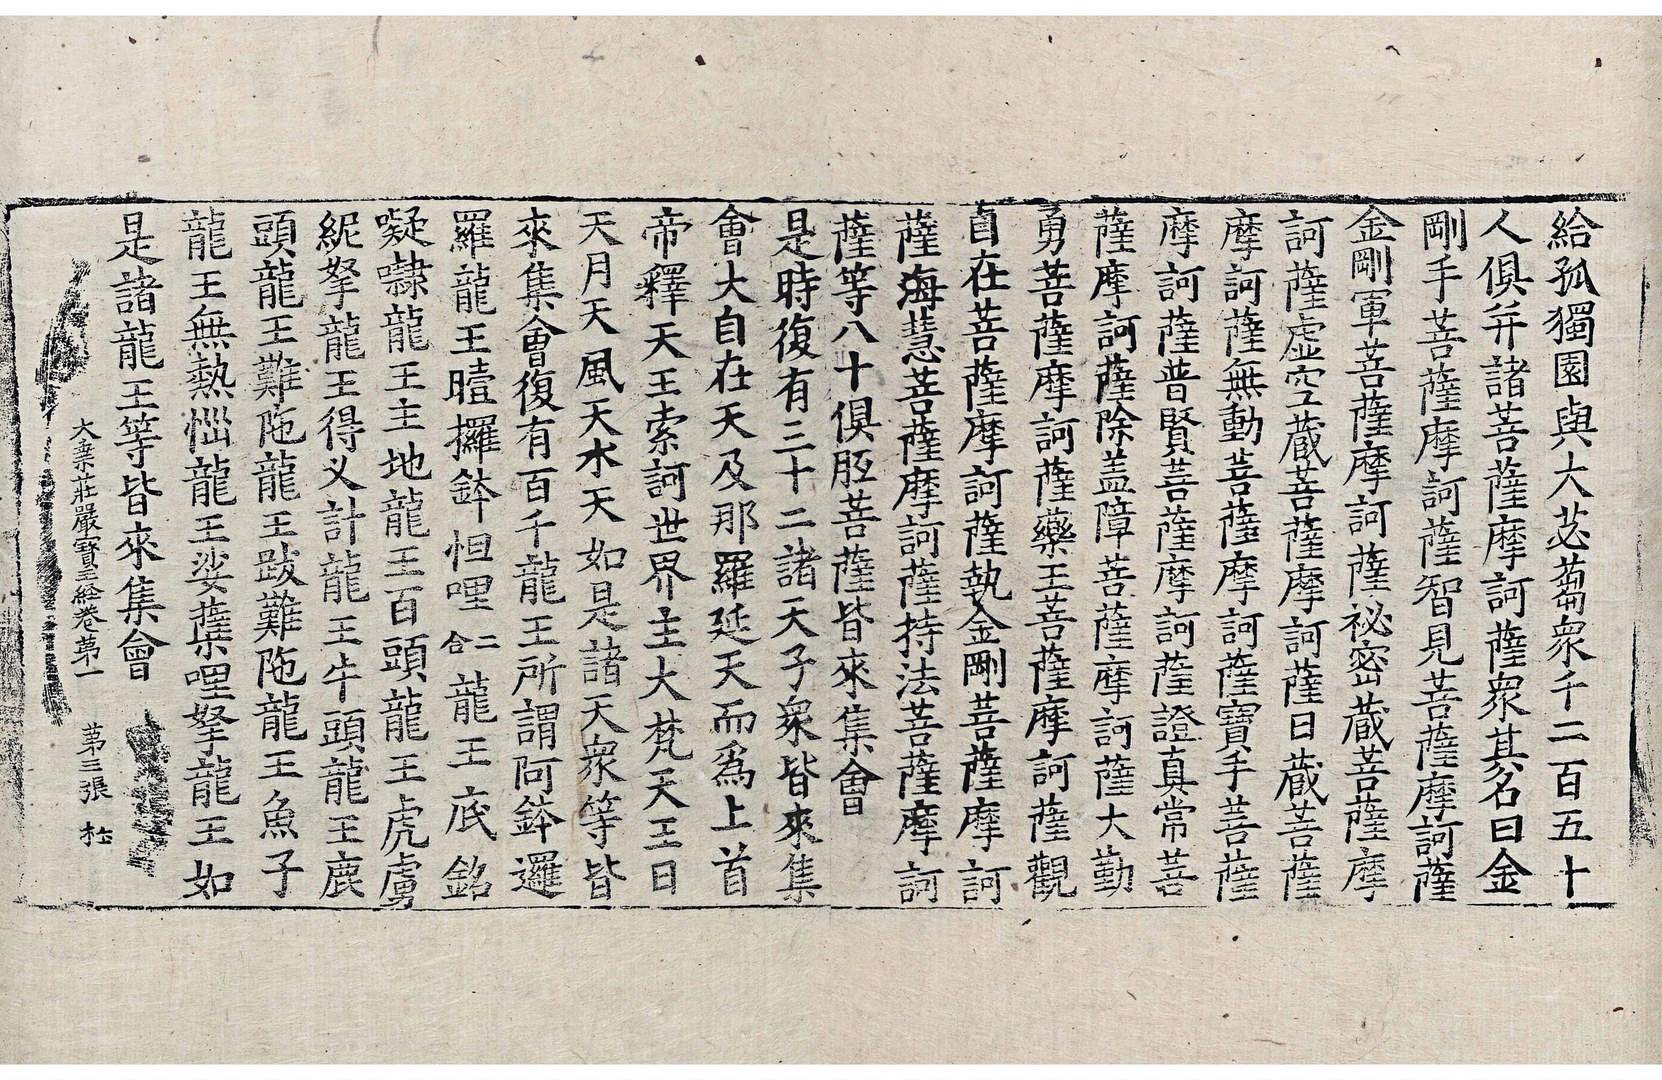 給孤獨園與大苾蒭衆千二百五十
人俱幷諸菩薩摩訶薩衆其名曰金
剛手菩薩摩訶薩智見菩薩摩訶薩
金剛軍菩薩摩訶薩祕密藏菩薩摩
訶薩虛空藏菩薩摩訶薩日藏菩薩
摩訶薩無動菩薩摩訶薩寶手菩薩
摩訶薩普賢菩薩摩訶薩證真常菩
薩摩訶薩除盖障菩薩摩訶薩大勤
勇菩薩摩訶薩藥王菩薩摩訶薩觀
自在菩薩摩訶薩執金剛菩薩摩訶
薩海慧菩薩摩訶薩持法菩薩摩訶
薩等八十俱胝菩薩皆來集會
是時復有三十二諸天子衆皆來集
會大自在天及那羅延天而爲上首
帝釋天王索訶世界主大梵天王日
天月天風天水天如是諸天衆等皆
來集會復有百千龍王所謂阿鉢邏
羅龍王曀攞鉢怛哩二合龍王底銘
㘈㘑龍王主地龍王百頭龍王虎虜
紇拏龍王得叉計龍王牛頭龍王鹿
頭龍王難陁龍王跋難陁龍王魚子
龍王無熱惱龍王娑蘖哩拏龍王如
是諸龍王等皆來集會
大乗莊嚴寶王經卷第一 第三張 杜